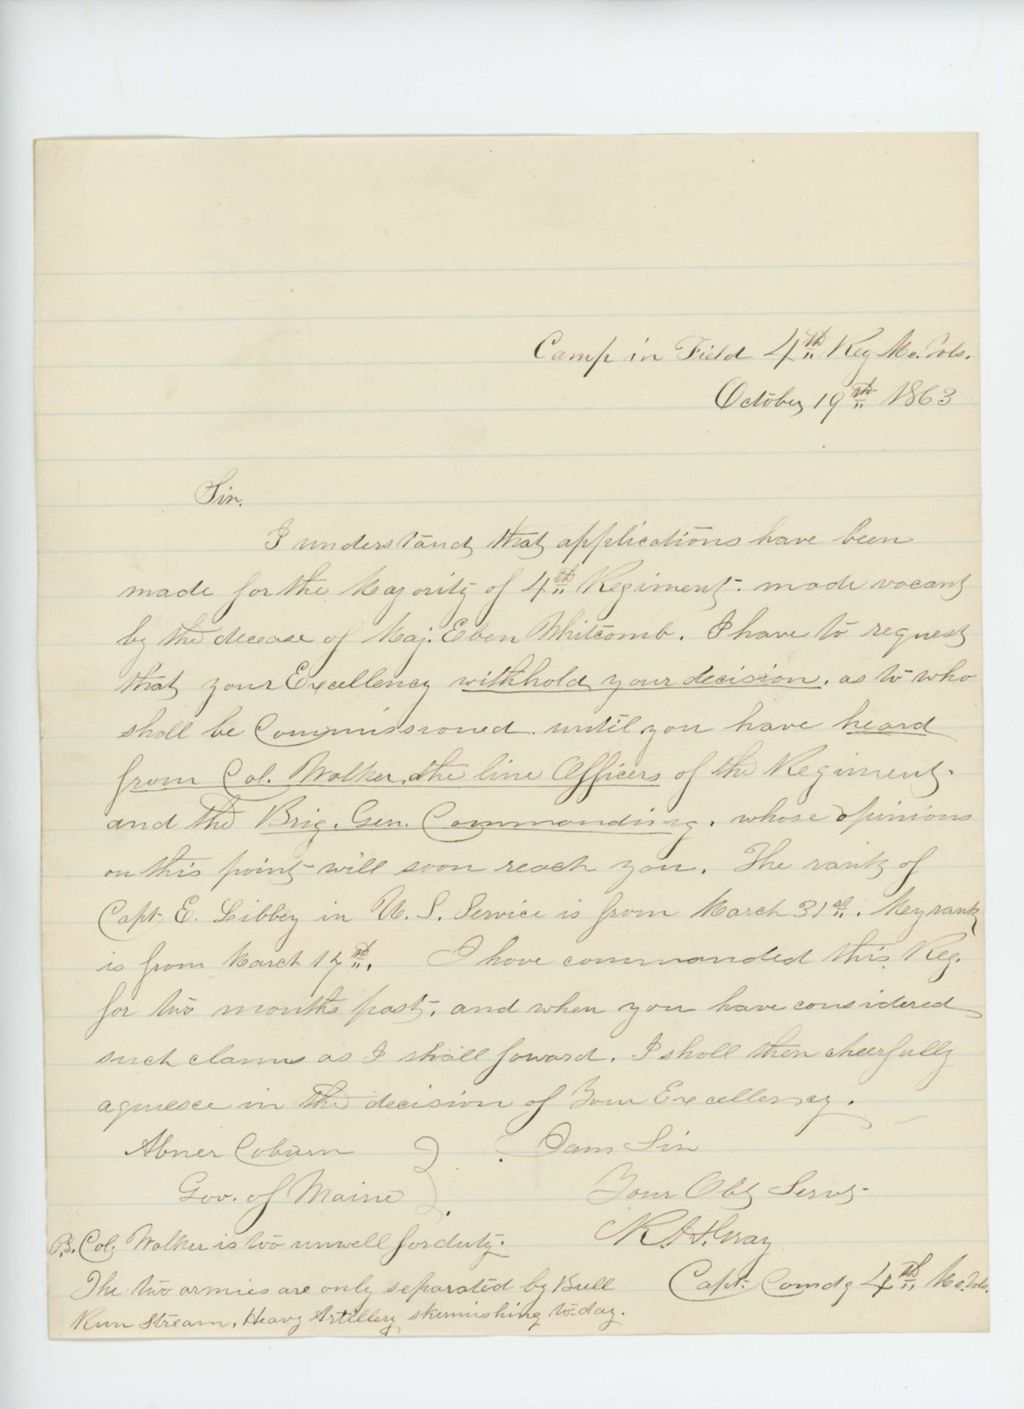 Camp in Field 4th Reg Me. Vols.
October 19th 1863
Sir.
I understand that applications have been
made for the Majority of 4th Regiment made vacant
by the decease of Maj. Eben Whitcomb. I have to request
that your Excellency withhold your decision, as to who
shall be Commissioned until you have heard
from Col. Walker, the line Officers of the Regiment
and the Brig. Gen. Commanding, whose opinions
on this point will soon reach you. The rank of
Capt. E. Libbey in U. S. Service is from March 31st. My rank
is from March 17th. I have commanded this Reg.
for two months past, and when you have considered
such claims as I shall foward, I shall then cheerfully
aquiesce in the decision of Your Excellency.
Abner Coburn } I am Sir
Gov. of Maine } Your Obt Servt
P.S. Col. Walker is too unwell for duty.
The two armies are only separated by Bull
Run Stream, Heavy Artillery skirmishing to-day.
Capt. Comdg 4th Me. Vols.